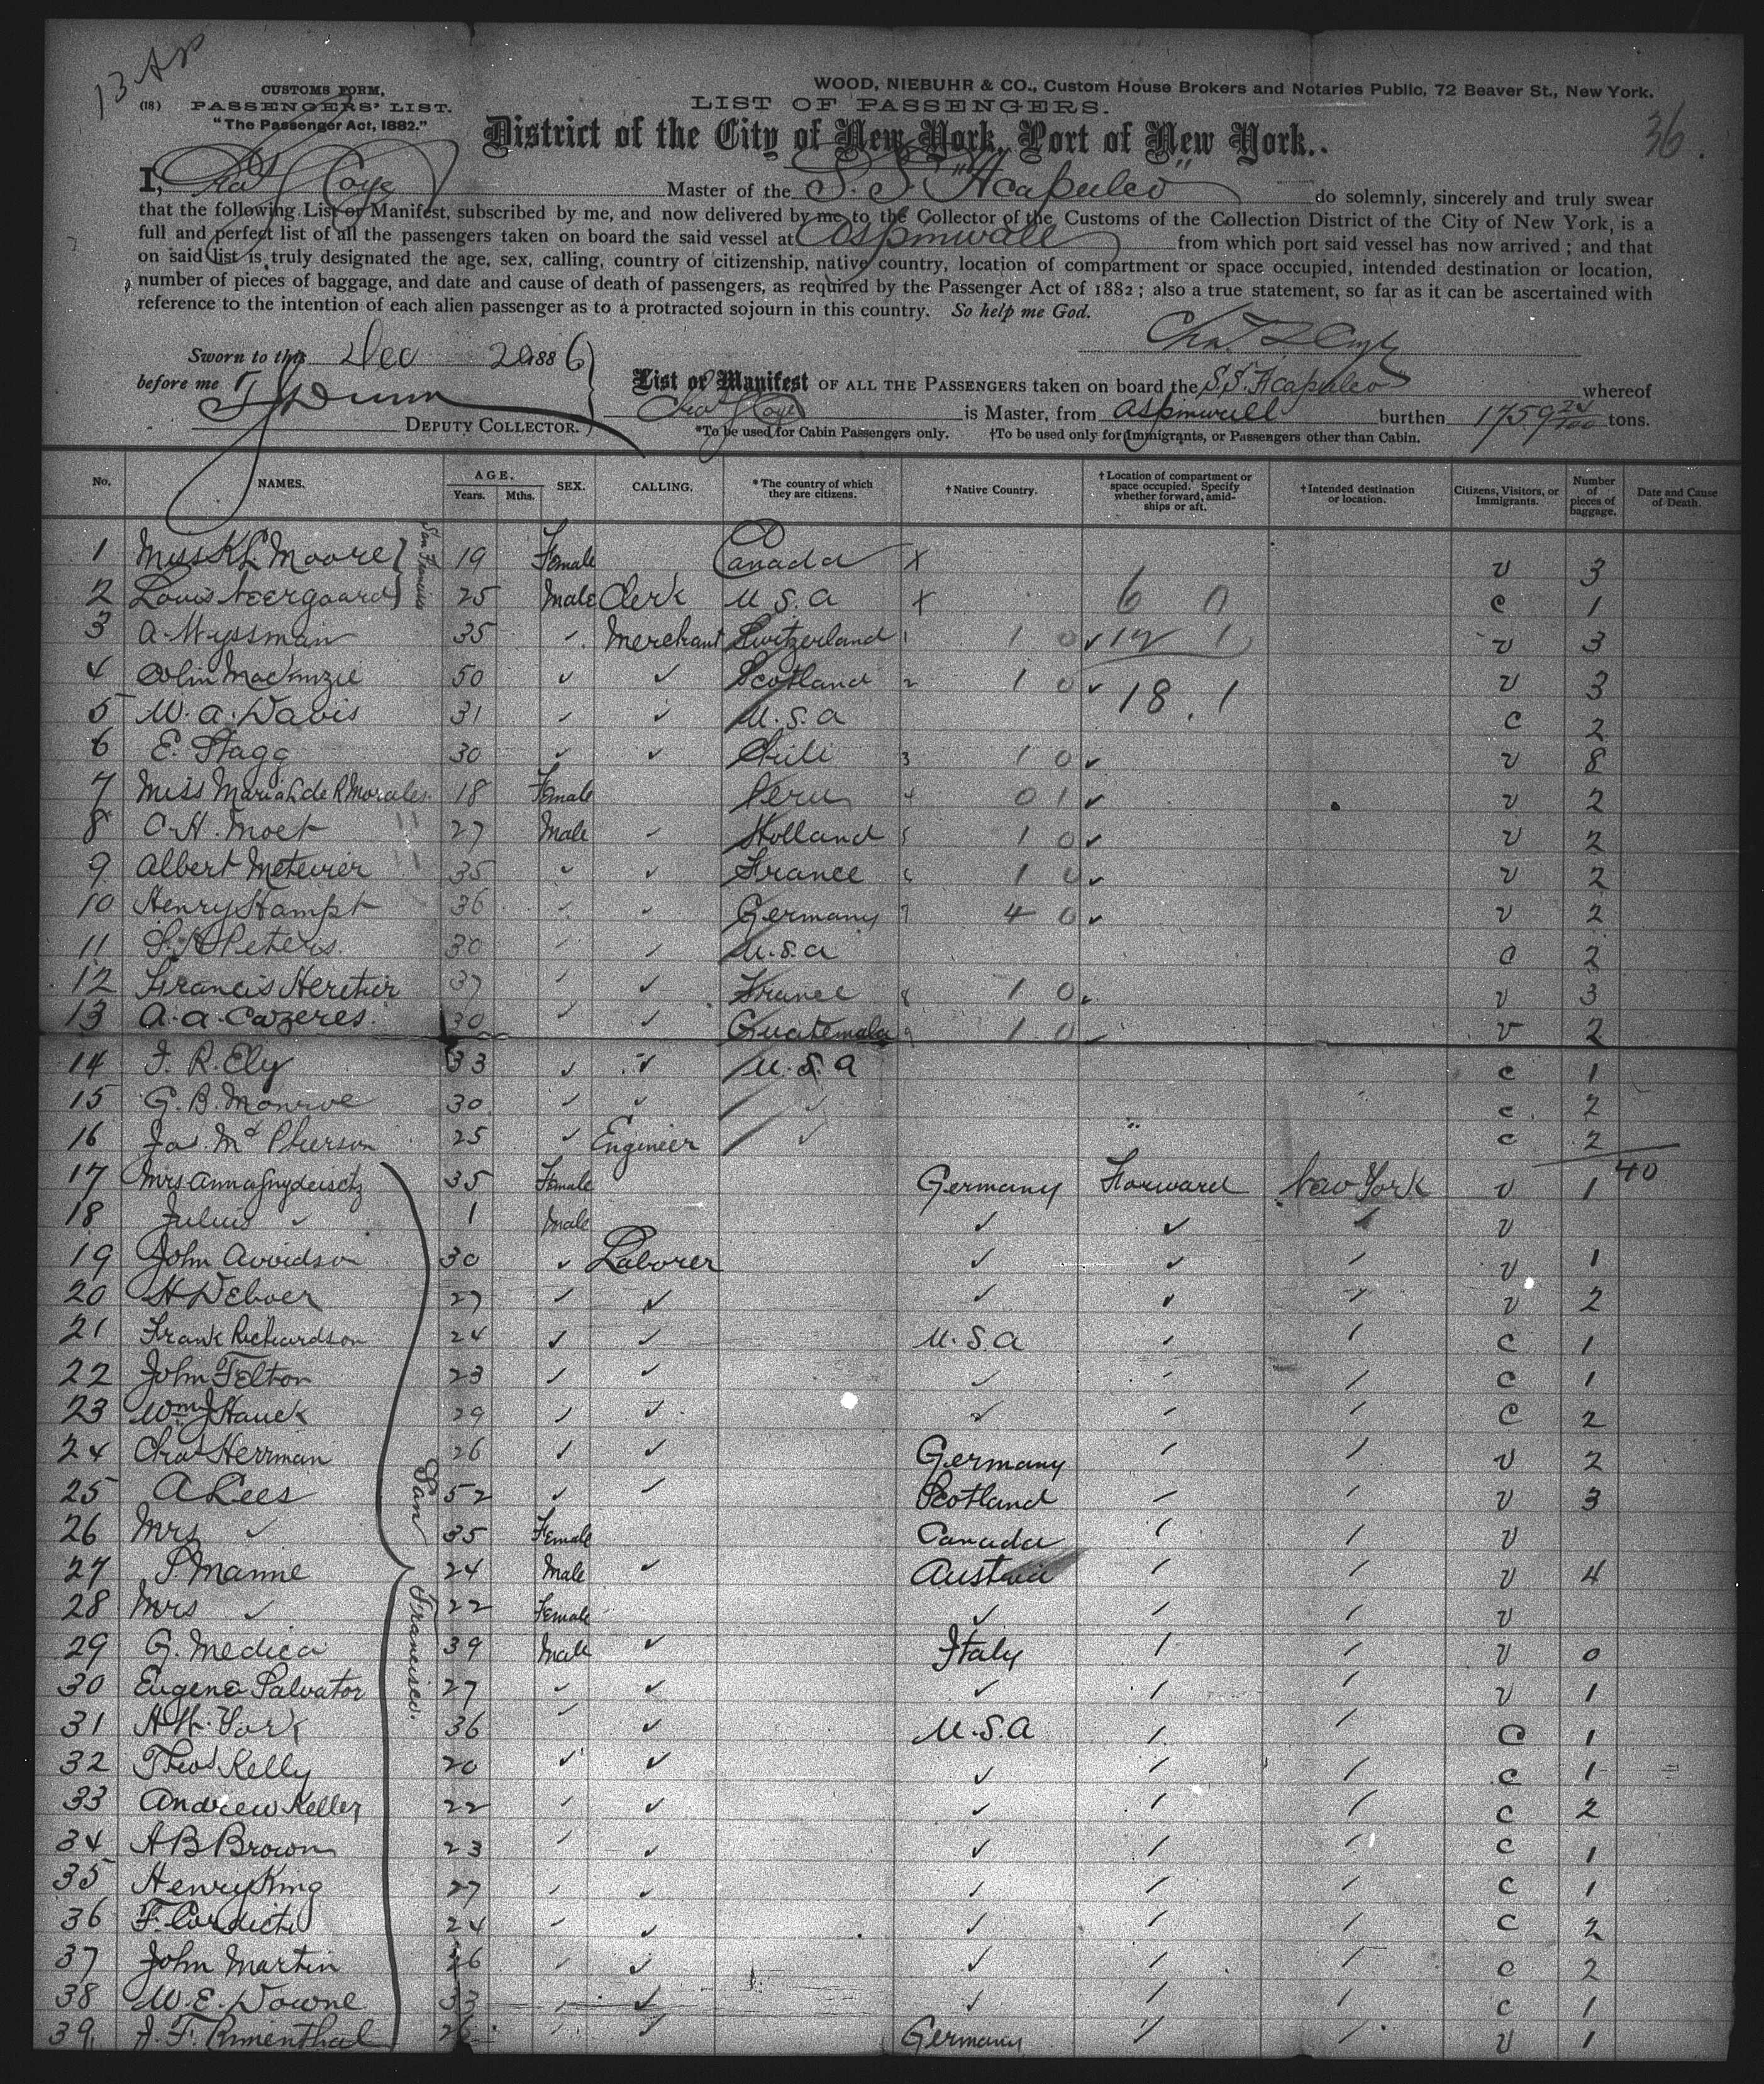 13 Ap
CUSTOMS FORM.
(18) PASSENGERS' LIST.
"The Passenger Act, 1882."
WOOD, NIEBUHR & CO., Custom House Brokers and Notaries Public, 72 Beaver St., New York.
LIST OF PASSENGERS.
36.
District of the City of New York, Port of New York.
I, Chas Coye Master of the S. S. "Acapulco" do solemnly, sincerely and truly swear
that the following List or Manifest, subscribed by me, and now delivered by me to the Collector of the Customs of the Collection District of the City of New York, is a
full and perfect list of all the passengers taken on board the said vessel at Aspinwall from which port said vessel has now arrived; and that
on said list is truly designated the age, sex, calling, country of citizenship, native country, location of compartment or space occupied, intended destination or location,
number of pieces of baggage, and date and cause of death of passengers, as required by the Passenger Act of 1882; also a true statement, so far as it can be ascertained with
reference to the intention of each alien passenger as to a protracted sojourn in this country. So help me God.
Sworn to this Dec 20 1886
before me Dunn
DEPUTY COLLECTOR.
List or Manifest OF ALL THE PASSENGERS taken on board the S.S. Acapulco whereof
Chas Coye is Master, from Aspinwall burthen 1759 24/100 tons.
*To be used for Cabin Passengers only. †To be used only for Immigrants, or Passengers other than Cabin.
No. NAMES. AGE. Years. Mths. SEX. CALLING. * The country of which they are citizens. † Native Country. † Location of compartment or space occupied. Specify whether forward, amidships or aft. † Intended destination or location. Citizens, Visitors, or Immigrants. Number of pieces of baggage. Date and Cause of Death.
San Francisco
1 Miss K L Moore 19 Female Canada X v 3
2 Louis Neergaard 25 Male Clerk U S A X 6 0 c 1
3 A. Wyssman 35 ✓ Merchant Switzerland 1 1 0 ✓ 12 1 v 3
4 Colin Mackenzie 50 ✓ ✓ Scotland 2 1 0 ✓ 18.1 v 3
5 W. A. Davis 31 ✓ ✓ U.S.A c 2
6 E. Stagg 30 ✓ ✓ Chili 3 1 0 ✓ v 8
7 Miss Maria L de R Morales 18 Female Peru 4 0 1 ✓ v 2
8 C. H. Moet 27 Male ✓ Holland 5 1 0 ✓ v 2
9 Albert Metevier 35 ✓ ✓ France 6 1 0 ✓ v 2
10 Henry Hampt 36 ✓ ✓ Germany 7 4 0 ✓ v 2
11 S. H Peters. 30 ✓ ✓ U.S.A c 2
12 Francis Heretier 37 ✓ ✓ France 8 1 0 ✓ v 3
13 A. A. Cazeres. 30 ✓ ✓ Guatemala 9 1 0 ✓ v 2
14 F. R. Ely 33 ✓ ✓ U.S.A c 1
15 G. B. Monroe 30 ✓ ✓ ✓ c 2
16 Jas. McPherson 25 ✓ Engineer ✓ c 2
40
17 Mrs Anna 35 Female Germany Forward New York v 1
18 Julius ✓ 1 Male ✓ ✓ ✓ v
19 John Avvidson 30 ✓ Laborer ✓ ✓ ✓ v 1
20 H Deboer 27 ✓ ✓ ✓ ✓ ✓ v 2
21 Frank Richardson 24 ✓ ✓ U.S.A ✓ ✓ c 1
22 John Felton 23 ✓ ✓ ✓ ✓ ✓ c 1
23 Wm J Hauck 29 ✓ ✓ ✓ ✓ ✓ c 2
24 Chas Herrman 26 ✓ ✓ Germany ✓ ✓ v 2
25 A Lees 52 ✓ ✓ Scotland ✓ ✓ v 3
26 Mrs ✓ 35 Female Canada ✓ ✓ v
27 S. Manne 24 Male ✓ Austria ✓ ✓ v 4
28 Mrs ✓ 22 Female ✓ ✓ ✓ v
29 G. Medica 39 Male ✓ Italy ✓ ✓ v 0
30 Eugene Salvator 27 ✓ ✓ ✓ ✓ ✓ v 1
31 A. H. York 36 ✓ ✓ U.S.A ✓ ✓ c 1
32 Thos Kelly 20 ✓ ✓ ✓ ✓ ✓ c 1
33 Andrew Keller 22 ✓ ✓ ✓ ✓ ✓ c 2
34 A B Brown 23 ✓ ✓ ✓ ✓ ✓ c 1
35 Henry King 27 ✓ ✓ ✓ ✓ ✓ c 1
36 F. 24 ✓ ✓ ✓ ✓ ✓ c 2
37 John Martin 26 ✓ ✓ ✓ ✓ ✓ c 2
38 W. E. Downe 33 ✓ ✓ ✓ ✓ ✓ c 1
39 J. F. 26 ✓ ✓ Germany ✓ ✓ v 1
San Francisco.